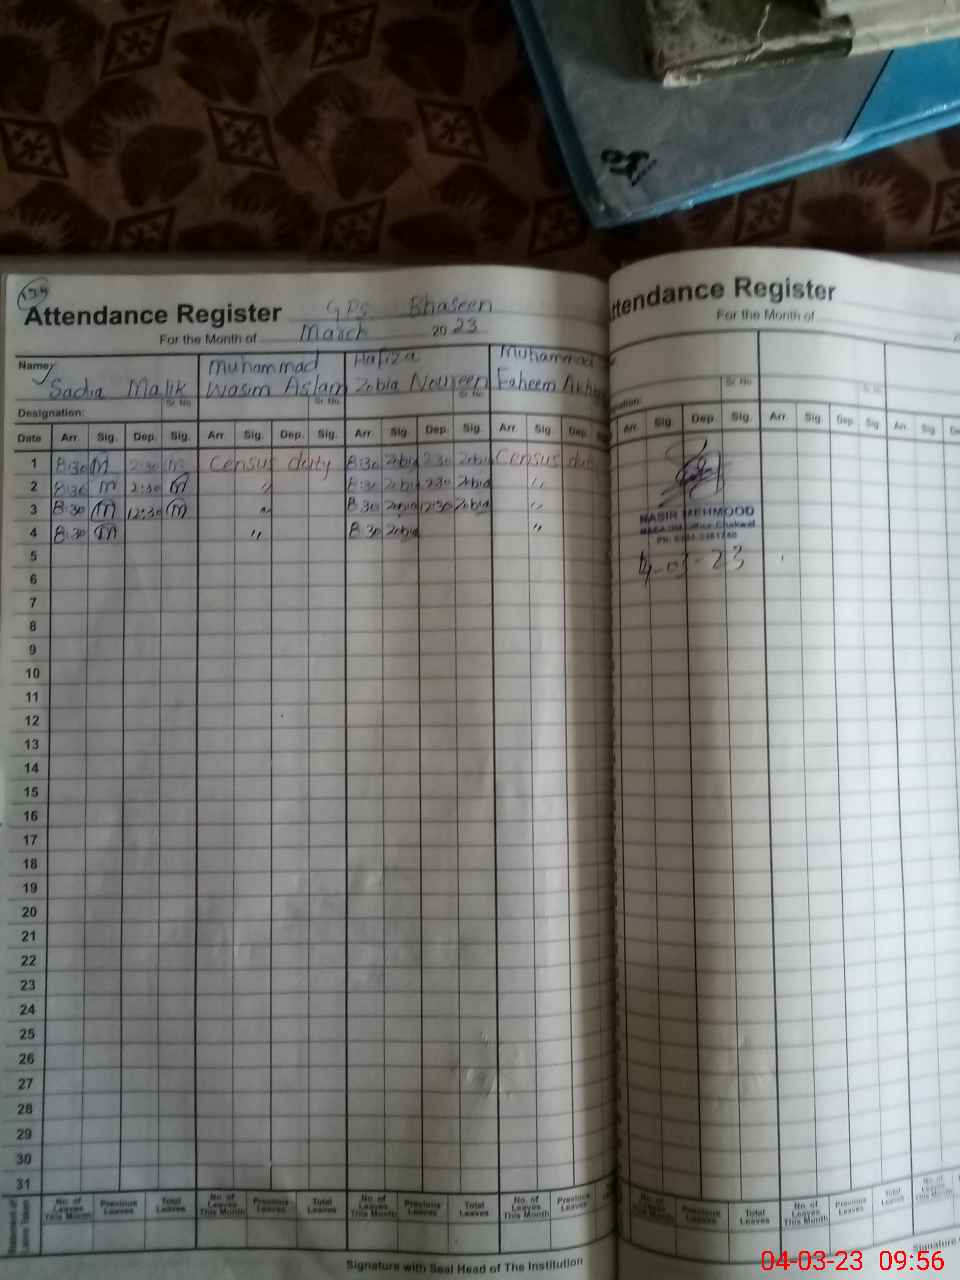 139
Attendance Register GPS Bhaseen
For the Month of March 2023
Name: Sadia Malik Muhammad Wasim Aslam Hafiza Zobia Noureen Muhammad Faheem
Sr. No. Sr. No. Sr. No.
Designation:
Date Arr. Sig. Dep. Sig. Arr. Sig. Dep. Sig. Arr. Sig. Dep. Sig. Arr. Sig. Dep.
1 8:30 m 2:30 m Census duty 8:30 Zobia 2:30 Zobia Census
2 8:30 m 2:30 m " 8:30 Zobia 2:30 Zobia "
3 8:30 m 12:30 m " 8:30 Zobia 12:30 Zobia "
4 8:30 m " 8:30 Zobia "
5
6
7
8
9
10
11
12
13
14
15
16
17
18
19
20
21
22
23
24
25
26
27
28
29
30
31
No. of Leaves This Month Previous Leaves Total Leaves No. of Leaves This Month Previous Leaves Total Leaves No. of Leaves This Month Previous Leaves Total Leaves No. of Leaves This Month Previous Leaves
Leave Taken
Signature with Seal Head of The Institution
ttendance Register
For the Month of
Sr. No. Sr. No.
Arr. Sig. Dep. Sig. Arr. Sig. Dep. Sig. Arr. Sig.
NASIR MEHMOOD
04-03-23
No. of Leaves This Month Previous Leaves Total Leaves No. of Leaves This Month Previous Leaves Total Leaves No. of Leaves This Month
Signature
04-03-23 09:56